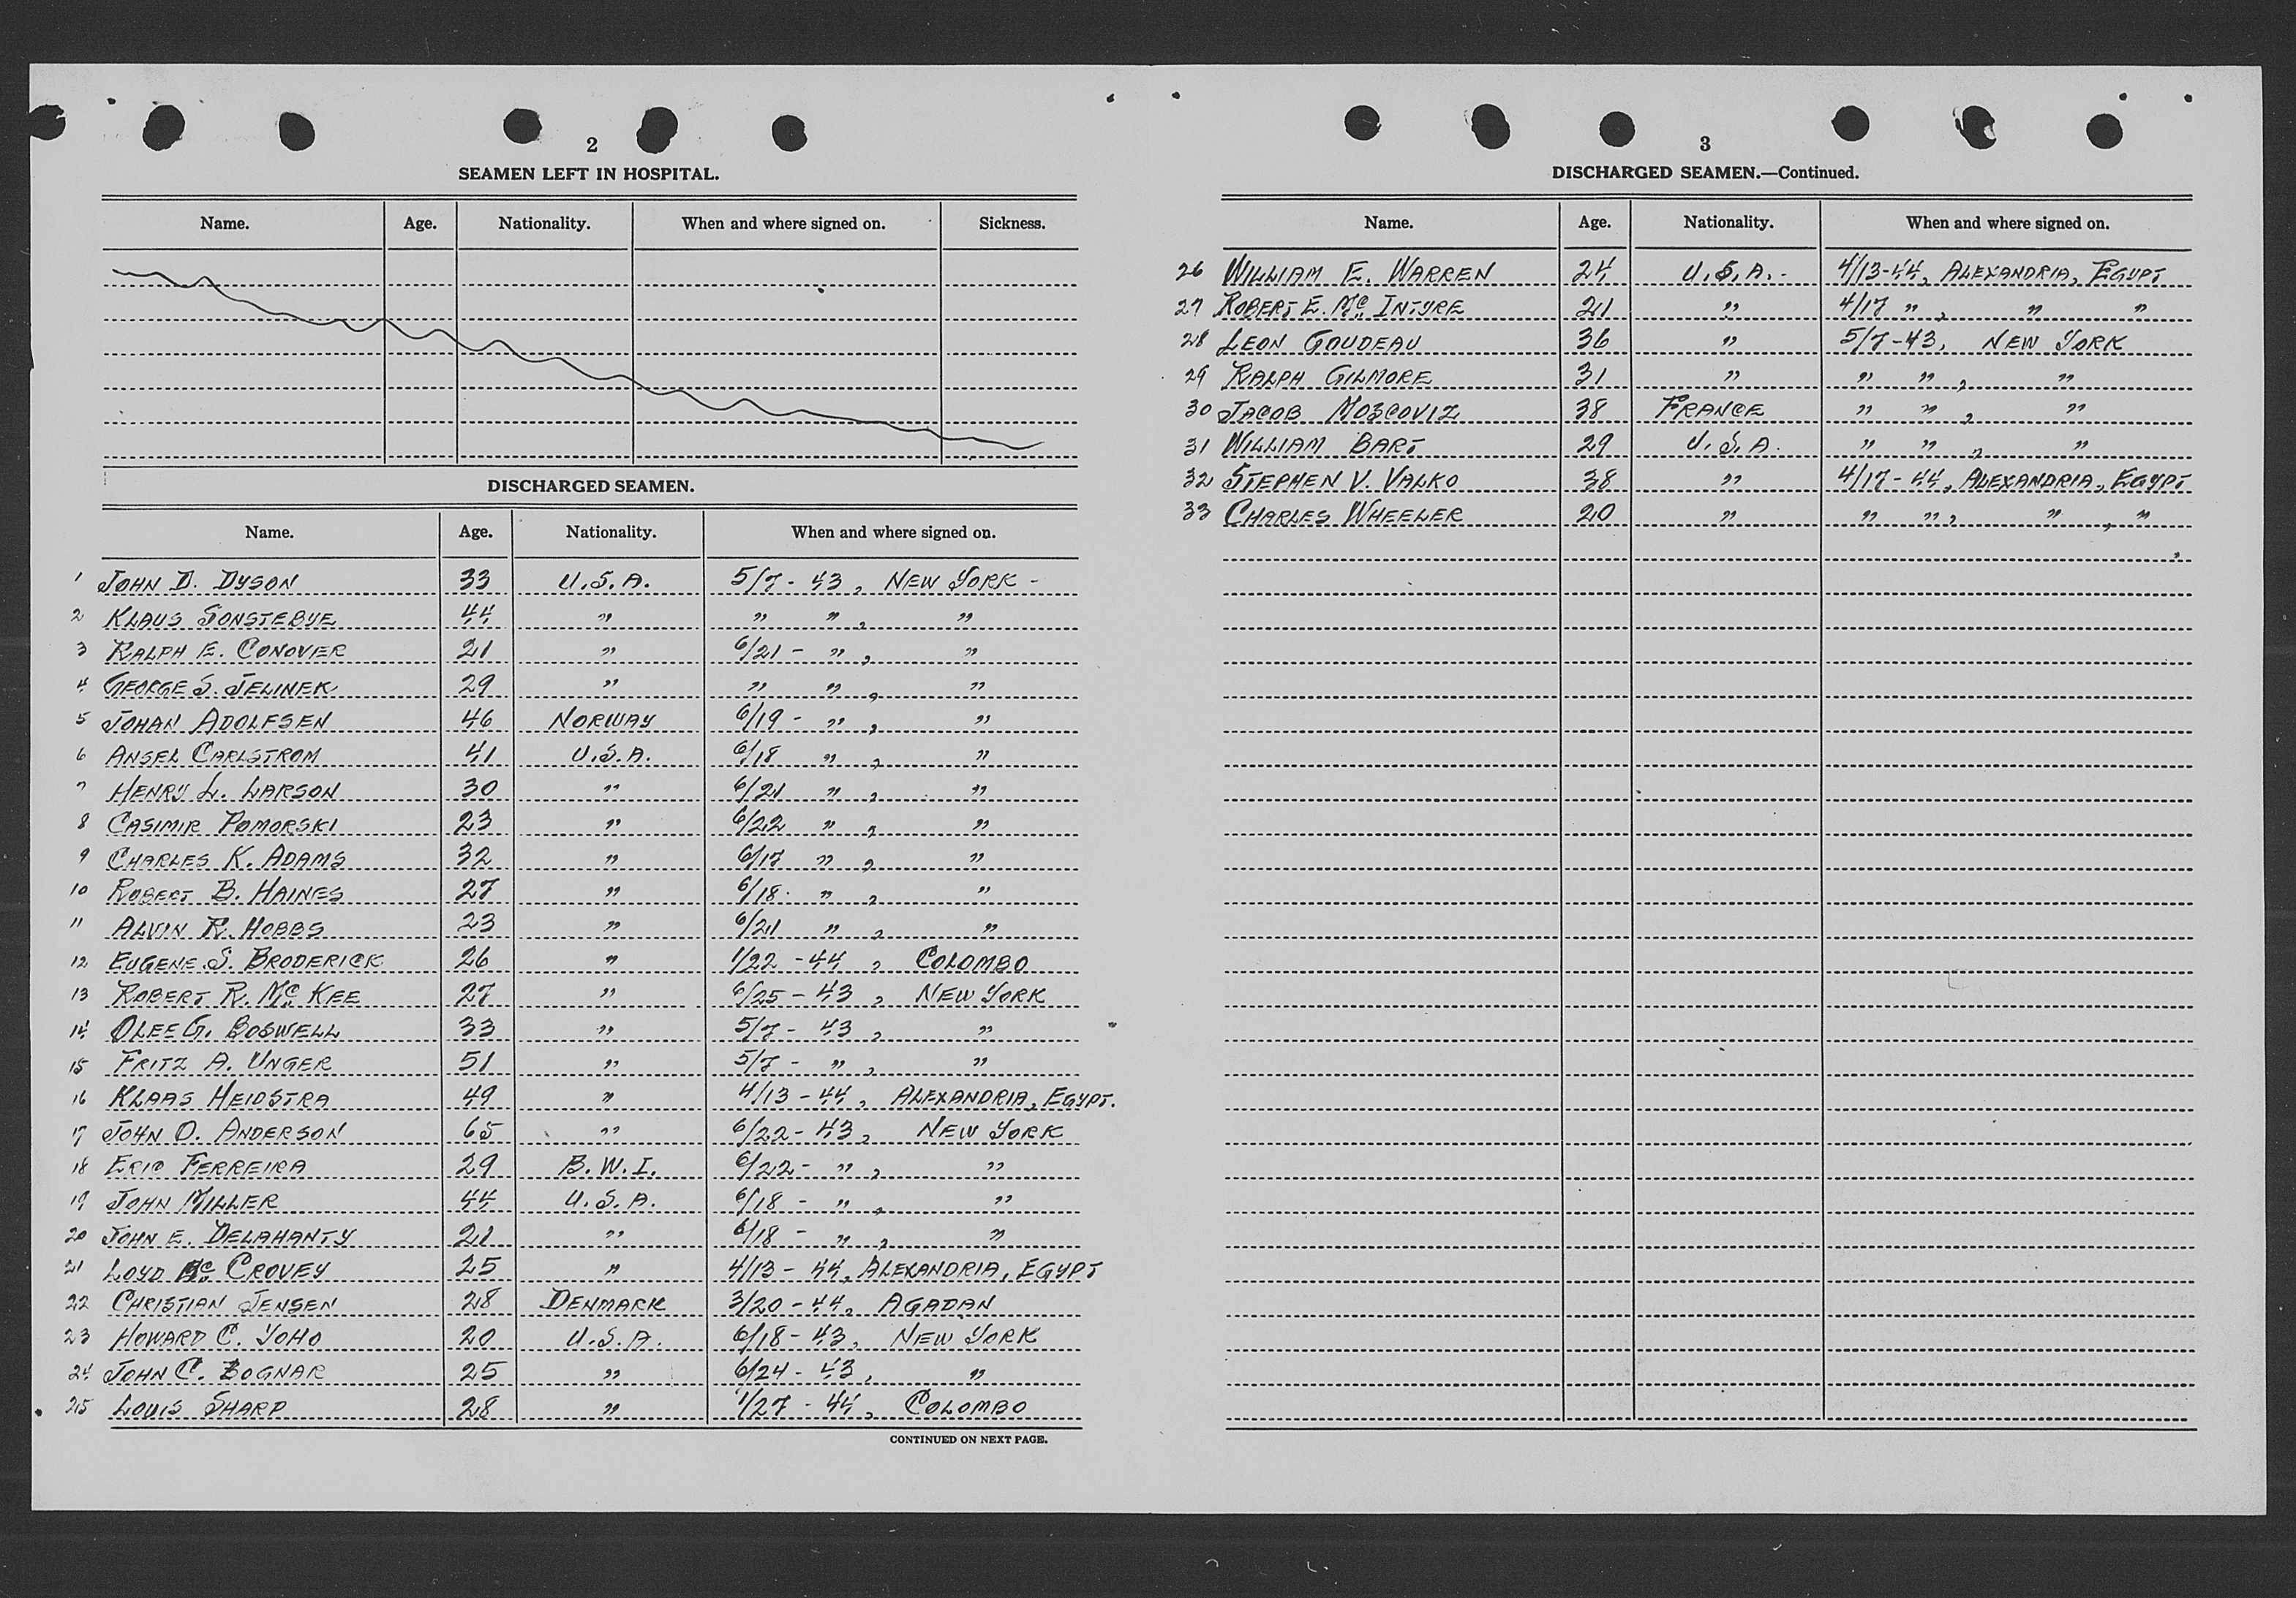 2
SEAMEN LEFT IN HOSPITAL.
Name. Age. Nationality. When and where signed on. Sickness.
DISCHARGED SEAMEN.
Name. Age. Nationality. When and where signed on.
1 JOHN D. DYSON 33 U.S.A. 5/7 - 43, NEW YORK -
2 KLAUS SONSTEBYE 44 " " ", "
3 RALPH E. CONOVER 21 " 6/21 - ", "
4 GEORGE S. JELINEK 29 " " ", "
5 JOHAN ADOLFSEN 46 NORWAY 6/19 - ", "
6 ANSEL CARLSTROM 41 U.S.A. 6/18 ", "
7 HENRY L. LARSON 30 " 6/21 ", "
8 CASIMIR POMORSKI 23 " 6/22 ", "
9 CHARLES K. ADAMS 32 " 6/17 ", "
10 ROBERT B. HAINES 27 " 6/18. ", "
11 ALVIN R. HOBBS 23 " 6/21 ", "
12 EUGENE S. BRODERICK 26 " 1/22 - 44, COLOMBO
13 ROBERT R. Mc KEE 27 " 6/25 - 43, NEW YORK
14 OLEE G. BOSWELL 33 " 5/7 - 43, "
15 FRITZ A. UNGER 51 " 5/7 - ", "
16 KLAAS HEIDSTRA 49 " 4/13 - 44, ALEXANDRIA, EGYPT.
17 JOHN O. ANDERSON 65 " 6/22 - 43, NEW YORK
18 ERIC FERREIRA 29 B.W.I. 6/22 - ", "
19 JOHN MILLER 44 U.S.A. 6/18 - ", "
20 JOHN E. DELAHANTY 21 " 6/18 - ", "
21 LOYD Mc CROVEY 25 " 4/13 - 44, ALEXANDRIA, EGYPT
22 CHRISTIAN JENSEN 28 DENMARK 3/20 - 44, AGADAN
23 HOWARD C. YOHO 20 U.S.A. 6/18 - 43, NEW YORK
24 JOHN C. BOGNAR 25 " 6/24 - 43, "
25 LOUIS SHARP 28 " 1/27 - 44, COLOMBO
CONTINUED ON NEXT PAGE.
3
DISCHARGED SEAMEN.—Continued.
Name. Age. Nationality. When and where signed on.
26 WILLIAM E. WARREN 24 U.S.A. - 4/13-44, ALEXANDRIA, EGYPT
27 ROBERT E. Mc INTYRE 21 " 4/17 ", " "
28 LEON GOUDEAU 36 " 5/7-43, NEW YORK
29 RALPH GILMORE 31 " " ", "
30 JACOB MOSCOVIZ 38 FRANCE " ", "
31 WILLIAM BART 29 U.S.A. " ", "
32 STEPHEN V. VALKO 38 " 4/17 - 44, ALEXANDRIA, EGYPT
33 CHARLES WHEELER 20 " " ", ", "